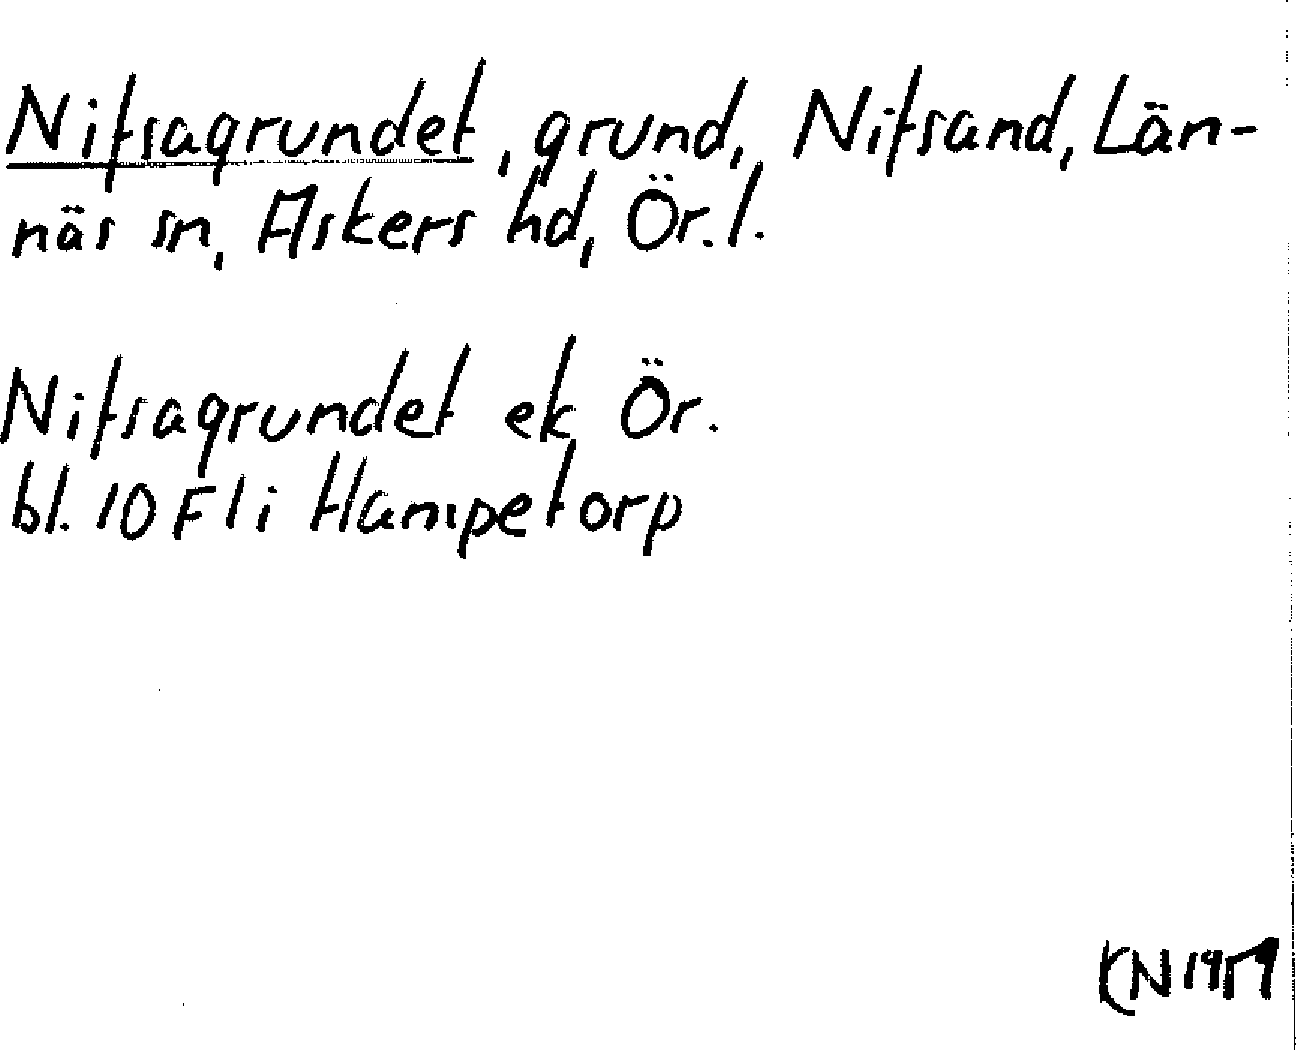 Nifsagrundet, grund, Nifsand, Län-
näs sn, Askers hd, Ör. l.
Nifsagrundet ek Ör.
bl. 10 F 1 i Hampetorp
KN